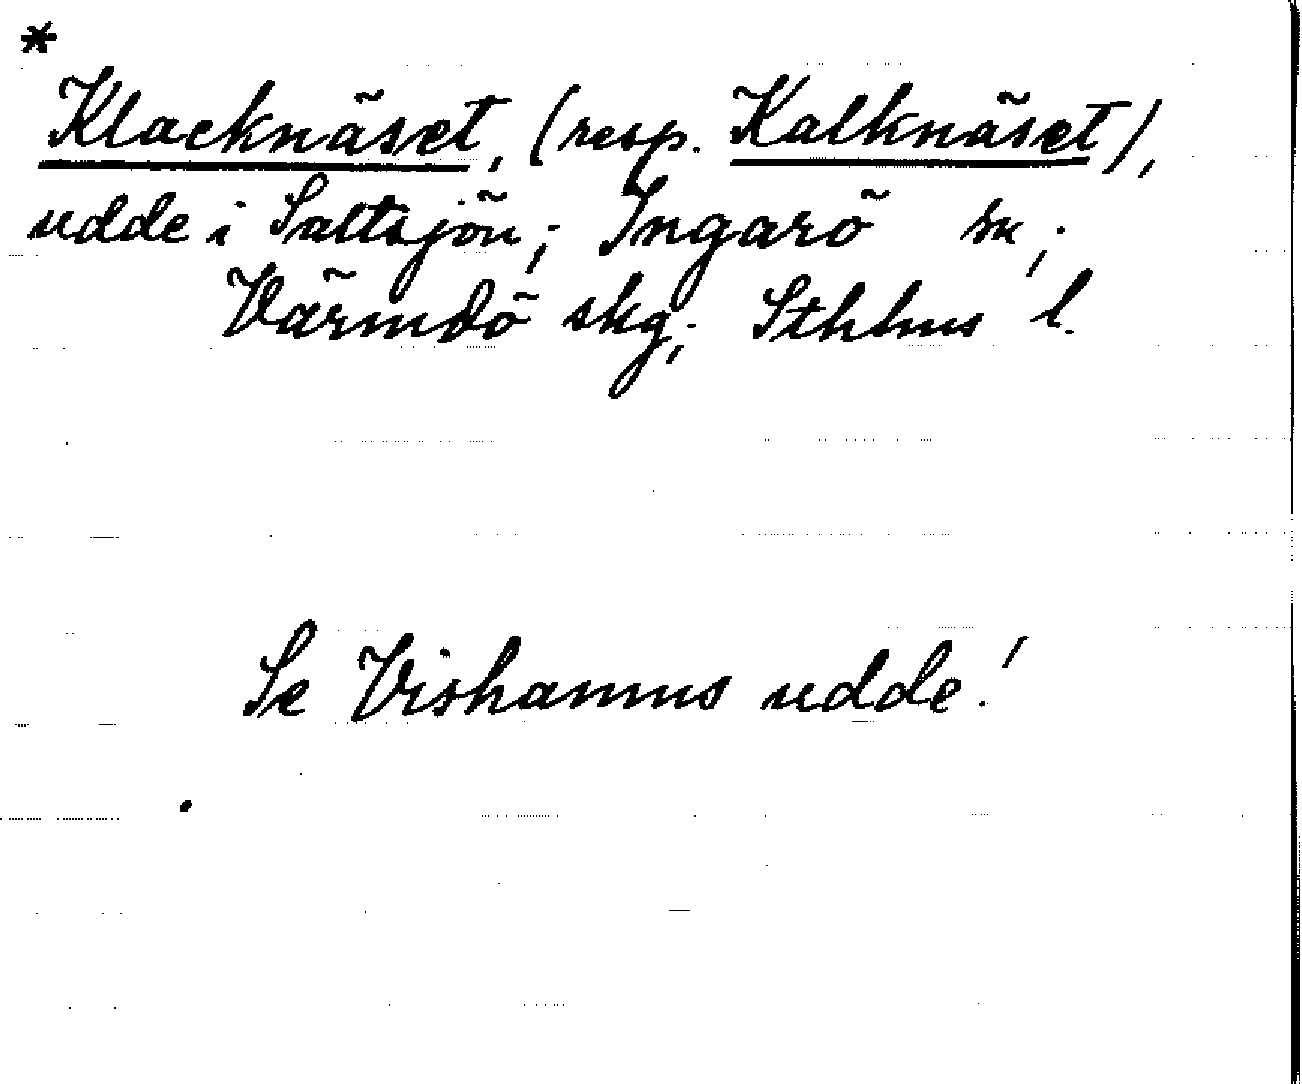 *
Klacknäset, (resp. Kalknäset),
udde i Saltsjön; Ingarö sn;
Värmdö skg; Sthlms l.
Se Vishamns udde!